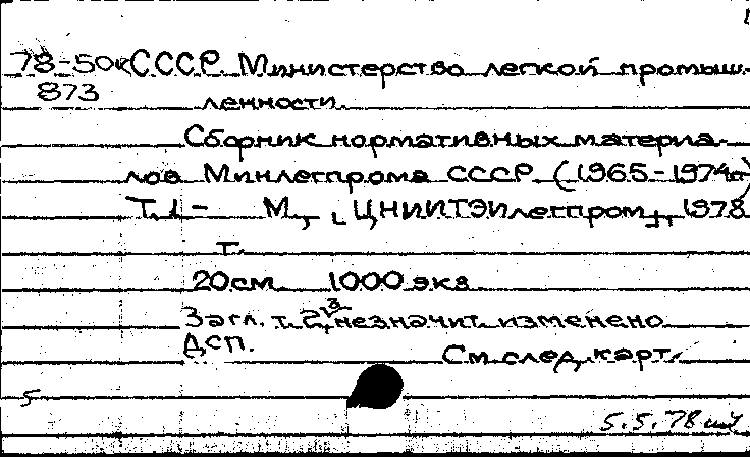 78-50к СССР. Министерство легкой промыш-
873 ленности.
Сборник нормативных материа-
лов Минлегпрома СССР (1965-1974гг)
Т. 1 - М., [ЦНИИТЭИлегпром], 1978
т.
20см. 1000 экз.
Загл. т. 2,3 незначит. изменено
ДСП.
См. след. карт.
5
5.5.78